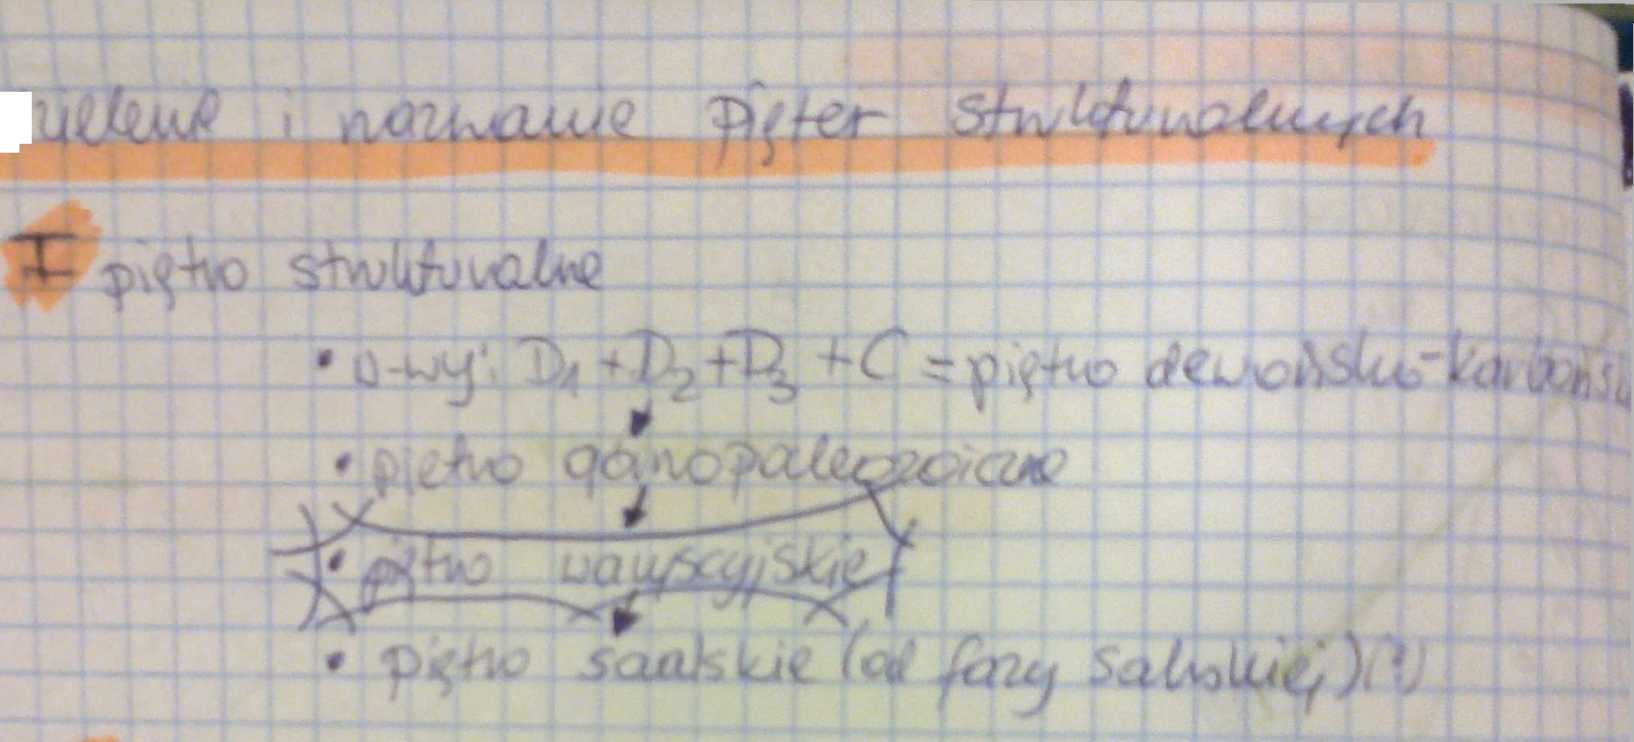 i nazwanie pięter strukturalnych
I piętro strukturalne
• D-wy: D1 + D2 + D3 + C = piętro dewońsko-karbońsk
• piętro górnopaleozoiczne
• piętro waryscyjskie
• piętro saalskie (od fazy salskiej) (!)